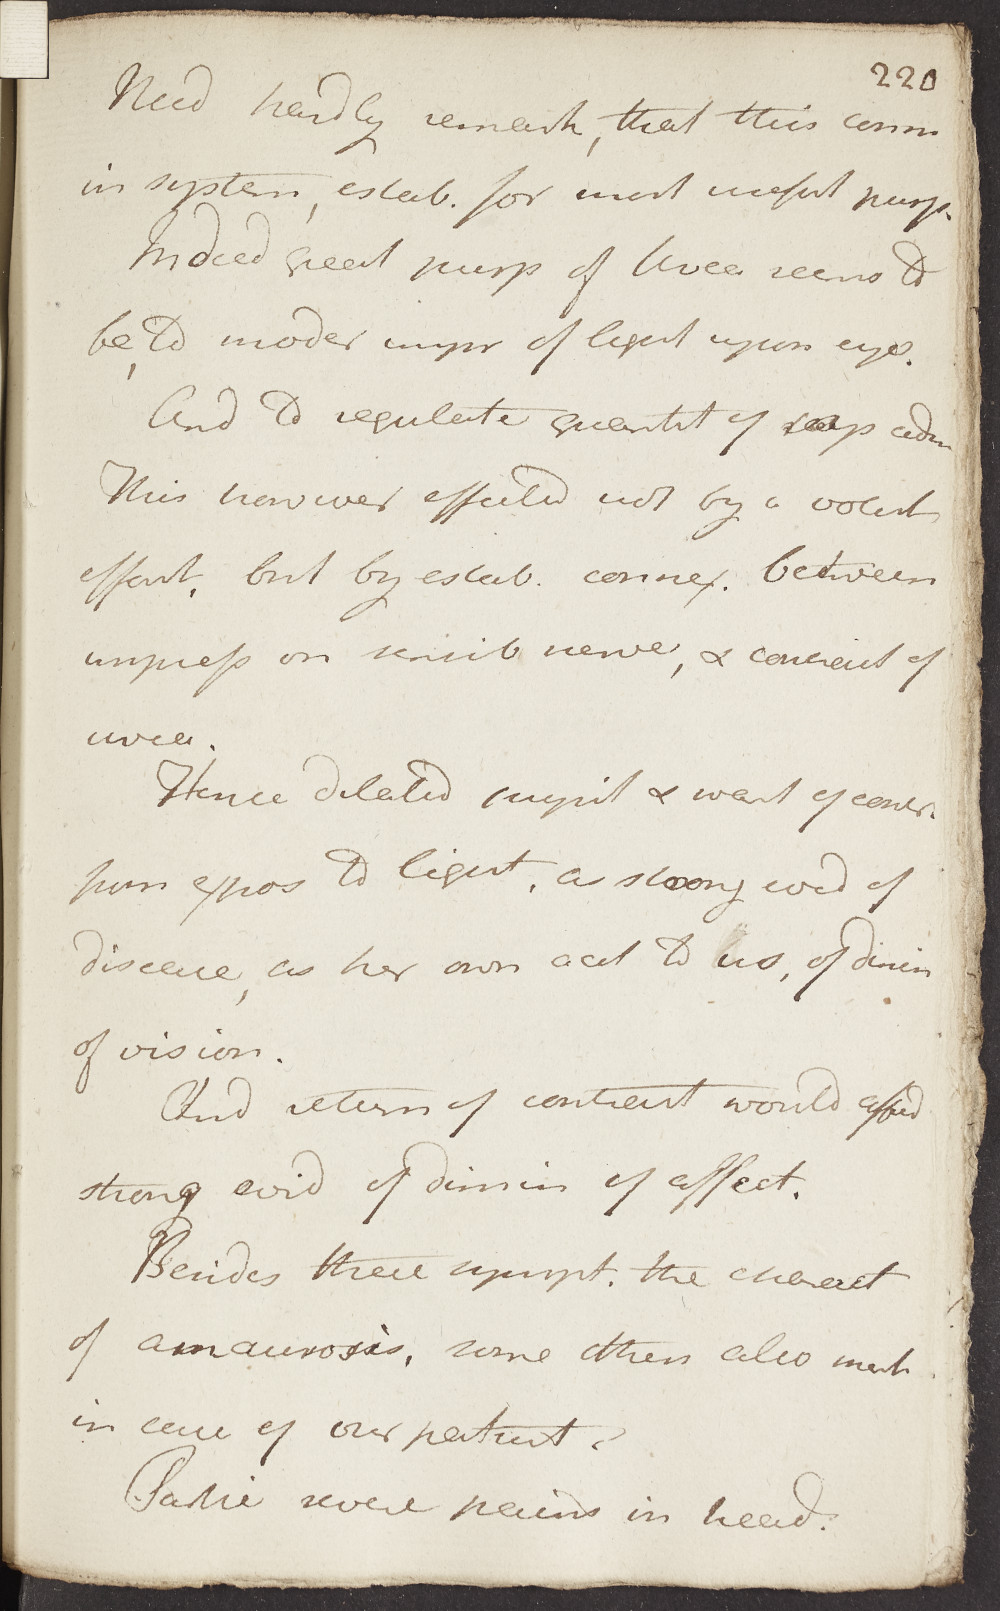 220
Need hardly remark, that this conn
in system, estab. for most useful purp.
Indeed great purp of Uvea seems to
be, to moder impr of light upon eye.
And to regulate quantit of rays adm
This however effected not by a volunt
effort, but by estab. connex. between
impress on sensib nerve, & contract of
uvea.
Hence dilated pupil & want of contr.
from expos to light, as strong evid of
disease, as her own acct to us, of dimin
of vision.
And return of contract would afford
strong evid of dimin of affect.
Besides these sympt. the charact
of amaurosis, some others also
in case of our patient.
Partic severe pains in head.